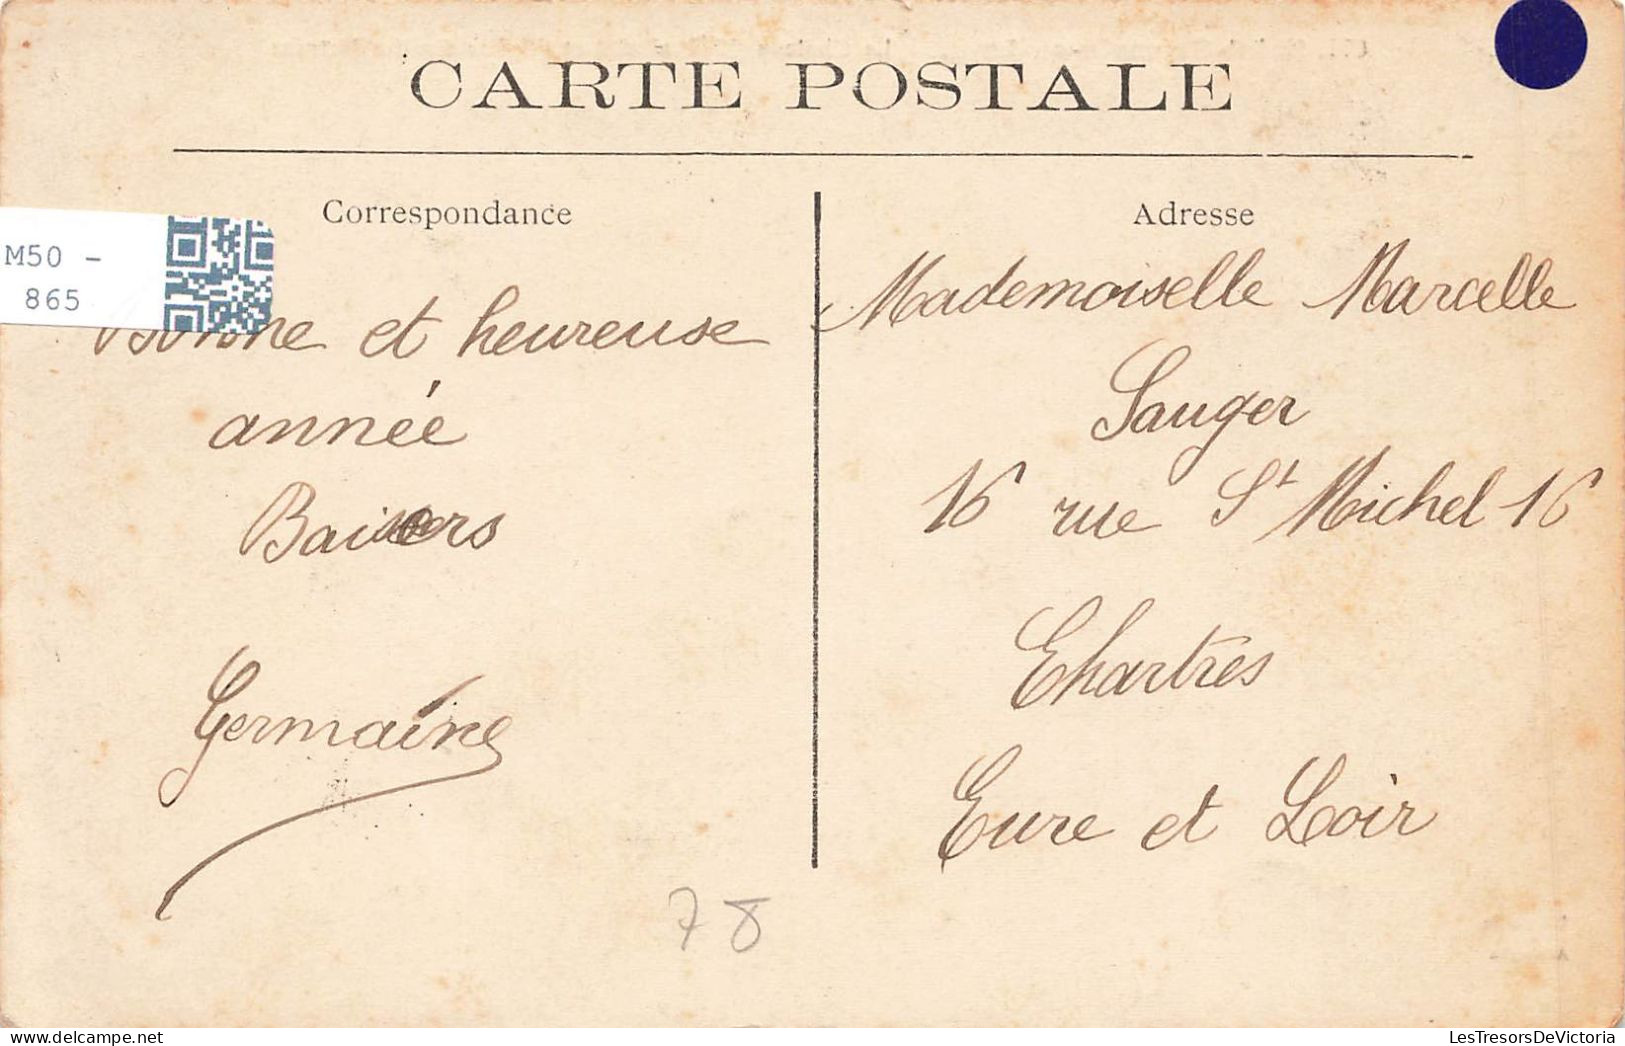 CARTE POSTALE
Correspondance
M50 -
865
Bonne et heureuse
année
Baisers
Germaine
78
Adresse
Mademoiselle Marcelle
Sauger
16 rue St Michel 16
Chartres
Eure et Loir
LesTresorsDeVictoria